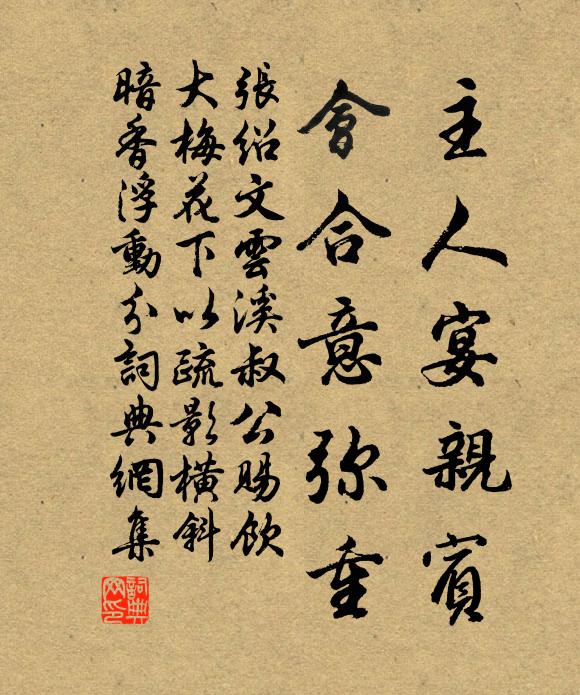 主人宴親賓
會合意弥重
張紹文雲溪叔公賜飲
大梅花下以疏影橫斜
暗香浮動分詞典網集
詞典
网印